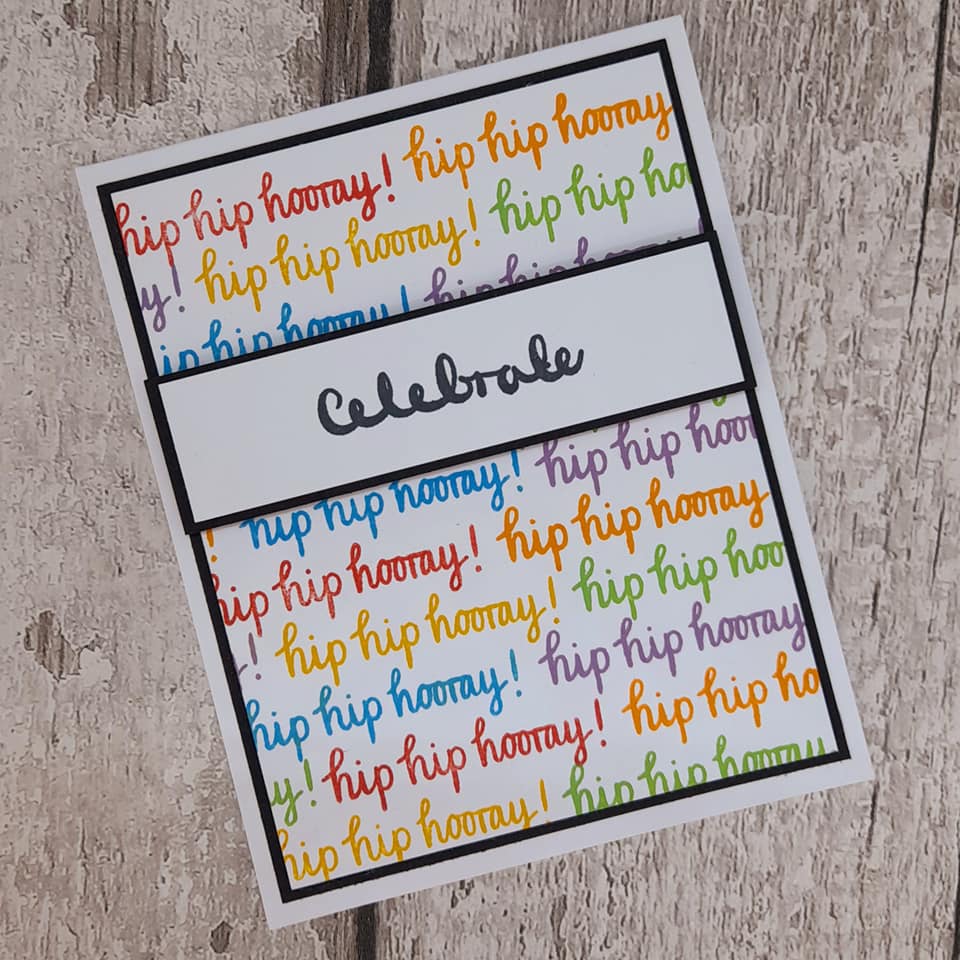 hip hip hooray! hip hip hooray
y! hip hip hooray! hip hip ho
ip hip hooray! hip hip hooray!
Celebrate
! hip hip hooray! hip hip hoor
hip hip hooray! hip hip hooray
! hip hip hooray! hip hip hoo
hip hip hooray! hip hip hooray
y! hip hip hooray! hip hip ho
hip hip hooray! hip hip hooray